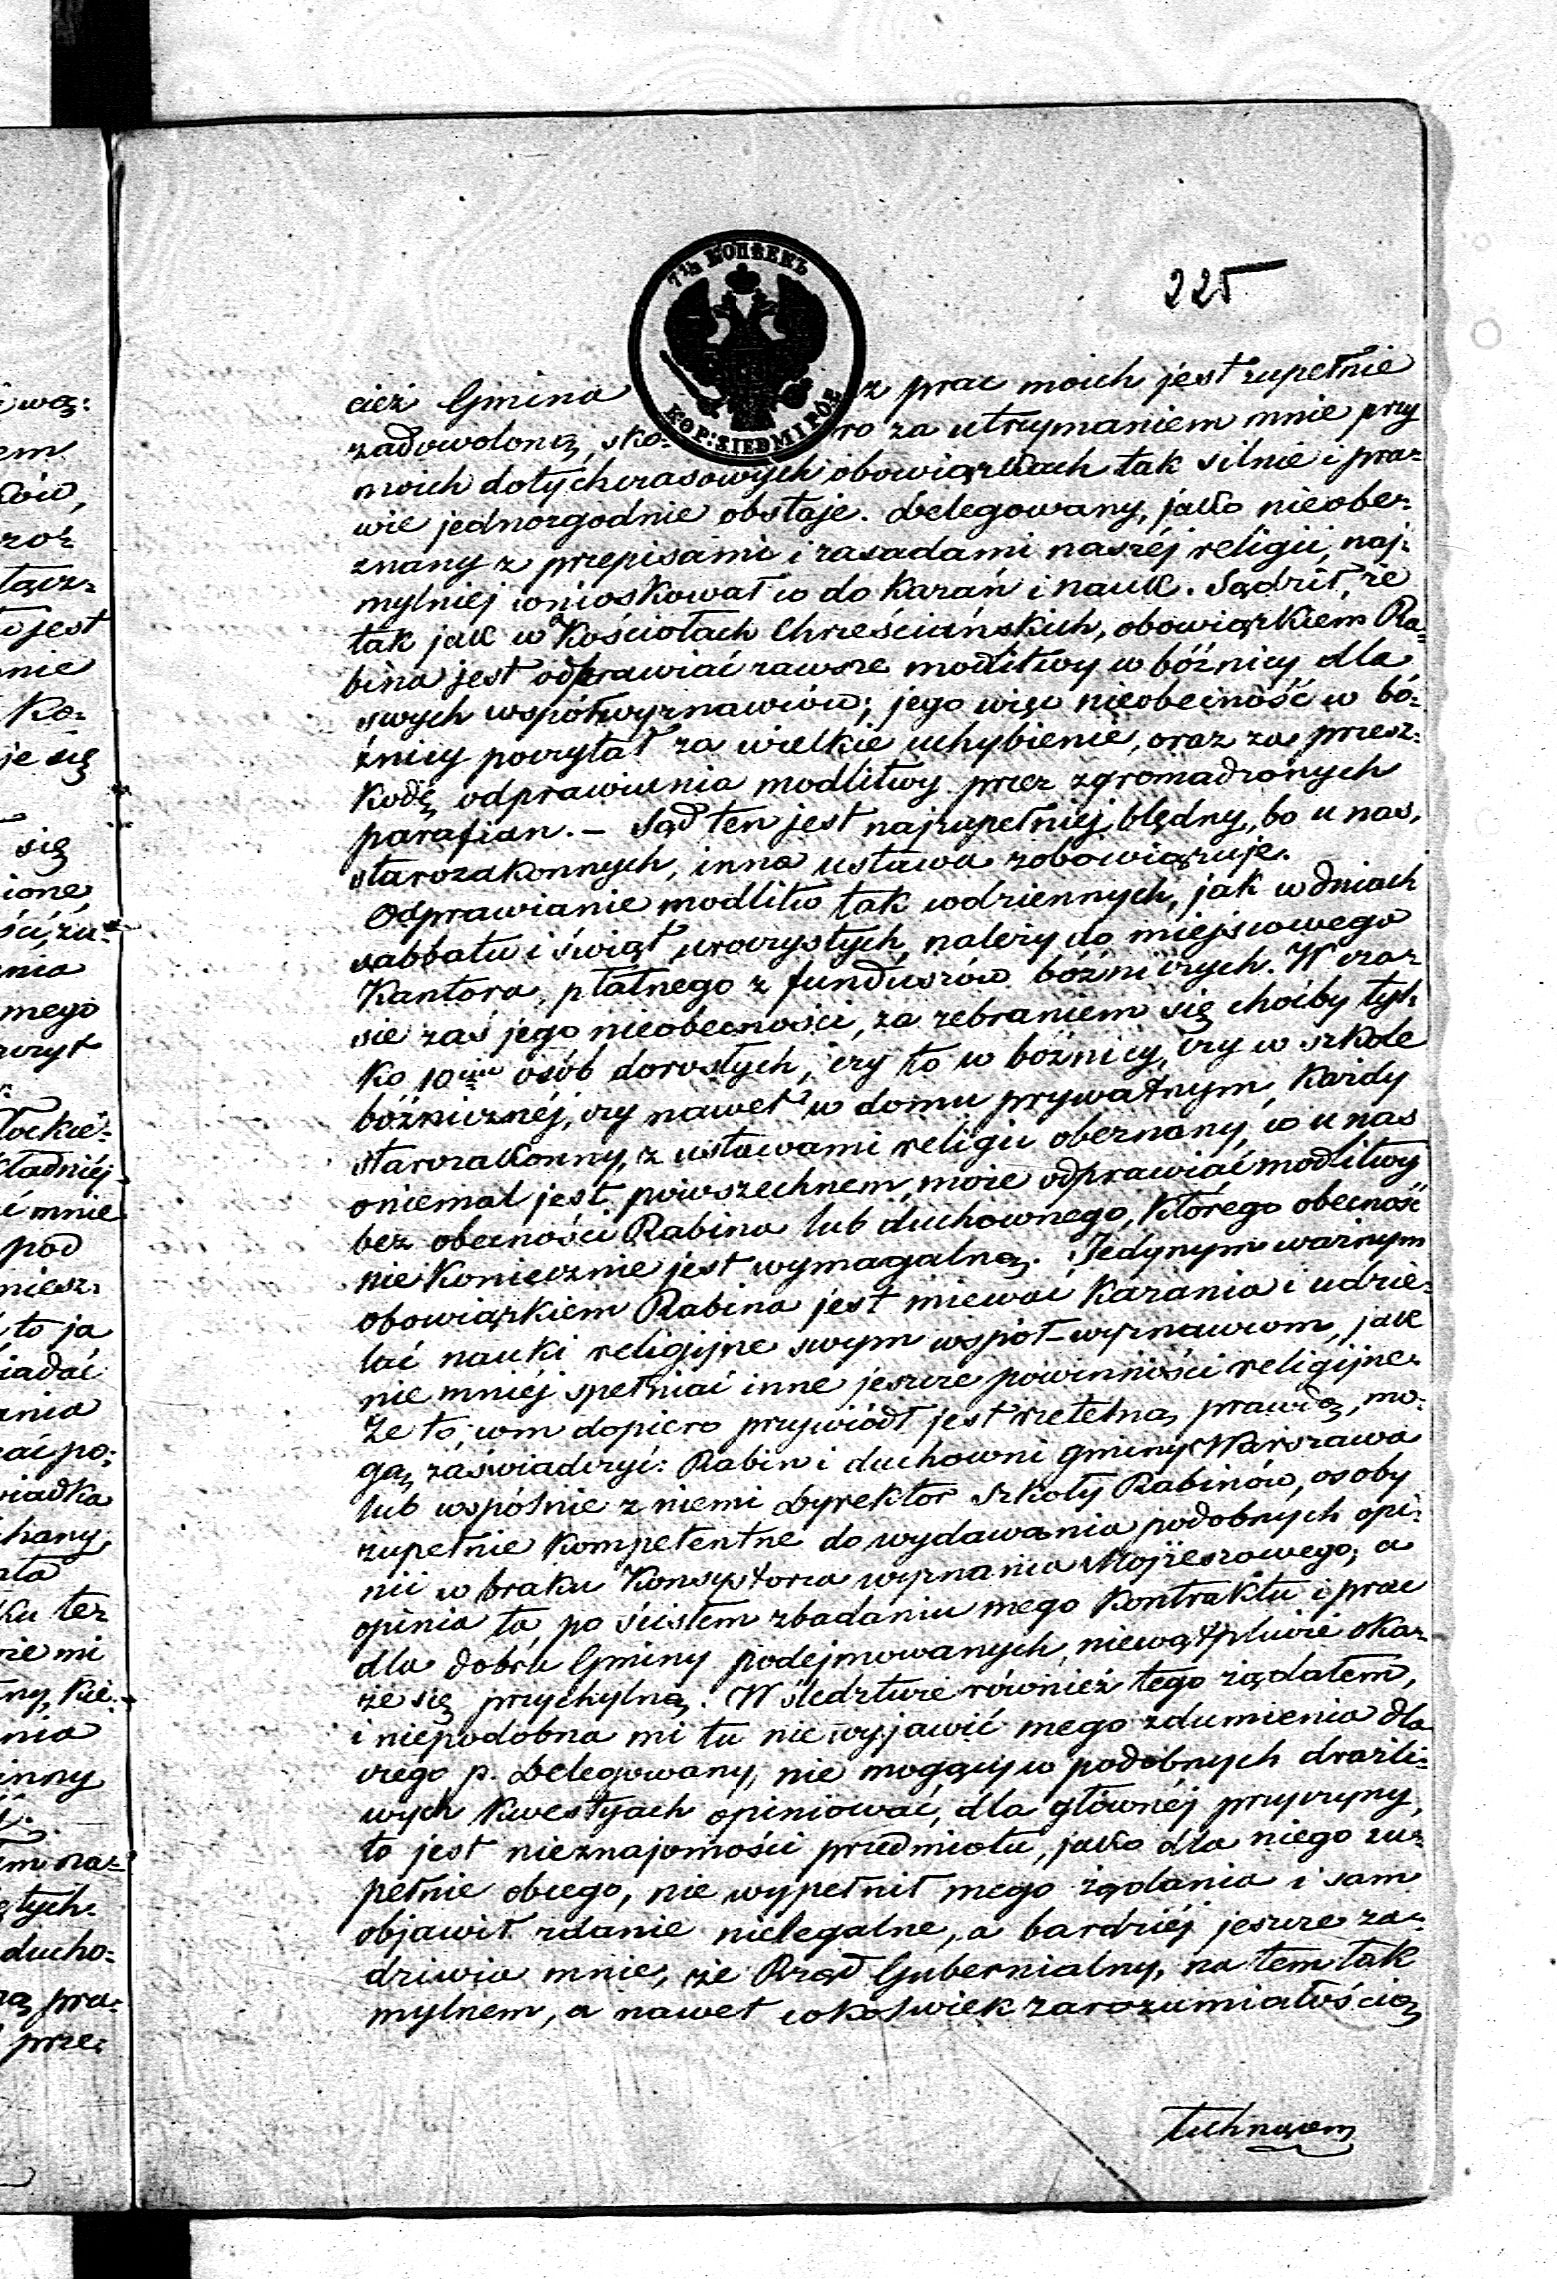 225
7½ КОПѢЕКЪ
KOP: SIEDMI PÓŁ
cież Gmina z prac moich jest zupełnie
zadowoloną, sko- ro za utrzymaniem mnie przy
moich dotychczasowych obowiązkach tak silnie i pra-
wie jednozgodnie obstaje. Delegowany, jako nieobe-
znany z przepisami i zasadami naszéj religii, naj-
mylniej wnioskował co do kazań i nauk. Sądził, że
tak jak w Kościołach Chrześciańskich, obowiązkiem Ra-
bina jest odprawiać zawsze modlitwy w bóźnicy dla
swych współwyznawców; jego więc nieobecność w bó-
źnicy poczytał za wielkie uchybienie, oraz za przesz-
kodę odprawiania modlitwy przez zgromadzonych
parafian. – Sąd ten jest najzupełniej błędny, bo u nas,
starozakonnych, inna ustawa zobowiązuje.
Odprawianie modlitw tak codziennych, jak w dniach
sabbatu i świąt uroczystych, należy do miejscowego
Kantora, płatnego z funduszów bóźniczych. W cza-
sie zaś jego nieobecności, za zebraniem się choćby tyl-
ko 10ciu osób dorosłych, czy to w bóźnicy, czy w szkole
bóźnicznéj, czy nawet w domu prywatnym, każdy
starozakonny, z ustawami religii obeznany, co u nas
oniemal jest powszechnem, może odprawiać modlitwy
bez obecności Rabina lub duchownego, którego obecność
nie koniecznie jest wymagalną. Jedynym ważnym
obowiązkiem Rabina jest miewać kazania i udzie-
lać nauki religijne swym współ-wyznawcom, jak
nie mniéj spełniać inne jeszcze powinności religijne.
Że to, com dopiero przywiódł jest rzetelną prawdą, mo-
gą zaświadczyć: Rabin i duchowni gminy Warszawa
lub wspólnie z niemi Dyrektor Szkoły Rabinów, osoby
zupełnie kompetentne do wydawania podobnych opi-
nii w braku Konsystorza wyznania Mojżeszowego; a
opinia ta, po ścisłem zbadaniu mego Kontraktu i prac
dla dobra Gminy podejmowanych, niewątpliwie oka-
że się przychylną. W śledztwie również tego żądałem,
i niepodobna mi tu nie wyjawić mego zdumienia dla
czego p. Delegowany, nie mogący w podobnych drażli-
wych kwestyach opiniować, dla głównéj przyczyny,
to jest nieznajomości przedmiotu, jako dla niego zu-
pełnie obcego, nie wypełnił mego żądania i sam
objawił zdanie nielegalne, a bardziéj jeszcze za-
dziwia mnie, że Rząd Gubernialny, na tem tak
mylnem, a nawet cokolwiek zarozumiałością
tchnącem